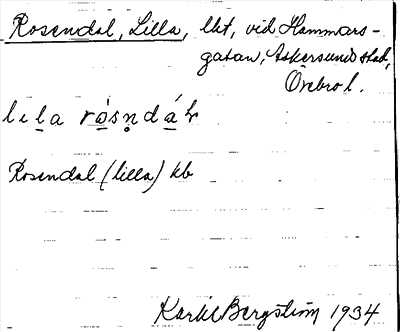 Rosendal, Lilla, lht, vid Hammars-
gatan, Askersund stad,
Örebro l.
lila rosṇdáɫ
Rosendal (lilla) kb
Karl Bergström 1934